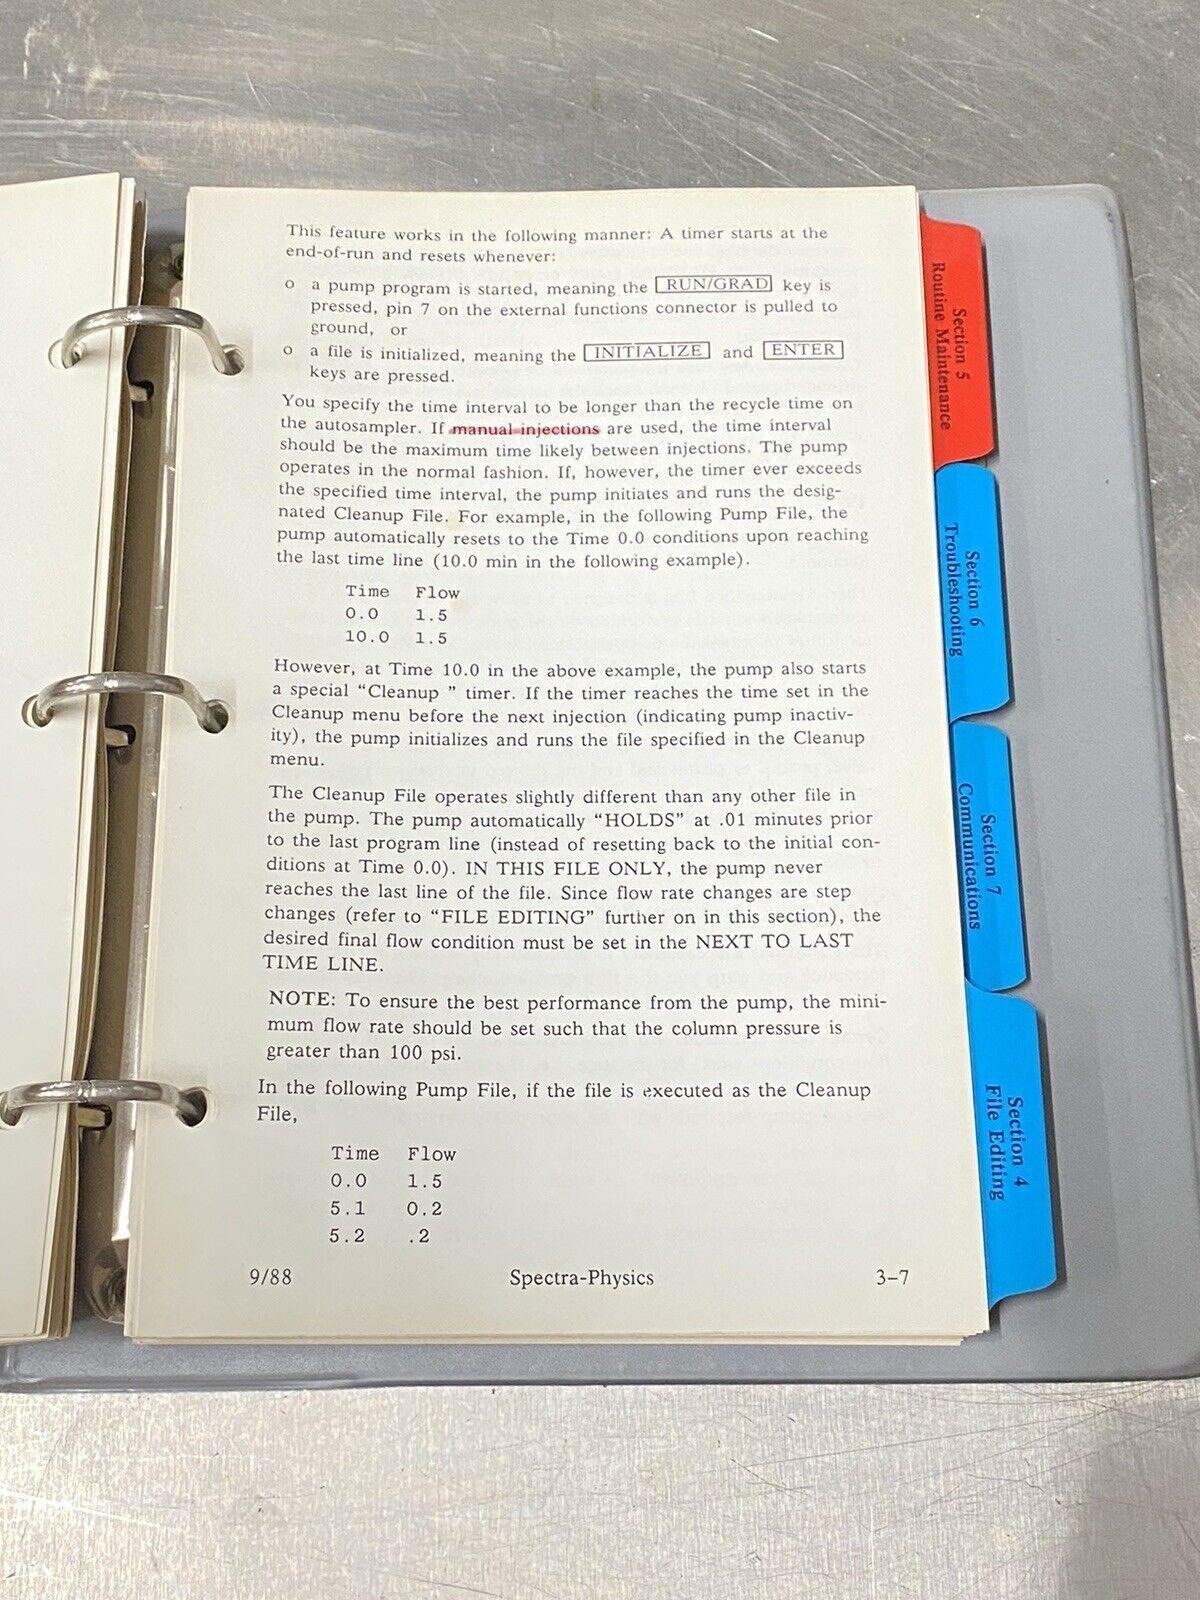 This feature works in the following manner: A timer starts at the
end-of-run and resets whenever:
o a pump program is started, meaning the RUN/GRAD key is
pressed, pin 7 on the external functions connector is pulled to
ground, or
o a file is initialized, meaning the INITIALIZE and ENTER
keys are pressed.
You specify the time interval to be longer than the recycle time on
the autosampler. If manual injections are used, the time interval
should be the maximum time likely between injections. The pump
operates in the normal fashion. If, however, the timer ever exceeds
the specified time interval, the pump initiates and runs the desig-
nated Cleanup File. For example, in the following Pump File, the
pump automatically resets to the Time 0.0 conditions upon reaching
the last time line (10.0 min in the following example).
Time Flow
0.0 1.5
10.0 1.5
However, at Time 10.0 in the above example, the pump also starts
a special “Cleanup ” timer. If the timer reaches the time set in the
Cleanup menu before the next injection (indicating pump inactiv-
ity), the pump initializes and runs the file specified in the Cleanup
menu.
The Cleanup File operates slightly different than any other file in
the pump. The pump automatically “HOLDS” at .01 minutes prior
to the last program line (instead of resetting back to the initial con-
ditions at Time 0.0). IN THIS FILE ONLY, the pump never
reaches the last line of the file. Since flow rate changes are step
changes (refer to “FILE EDITING” further on in this section), the
desired final flow condition must be set in the NEXT TO LAST
TIME LINE.
NOTE: To ensure the best performance from the pump, the mini-
mum flow rate should be set such that the column pressure is
greater than 100 psi.
In the following Pump File, if the file is executed as the Cleanup
File,
Time Flow
0.0 1.5
5.1 0.2
5.2 .2
9/88 Spectra-Physics 3-7
Section 5
Routine Maintenance
Section 6
Troubleshooting
Section 7
Communications
Section 4
File Editing